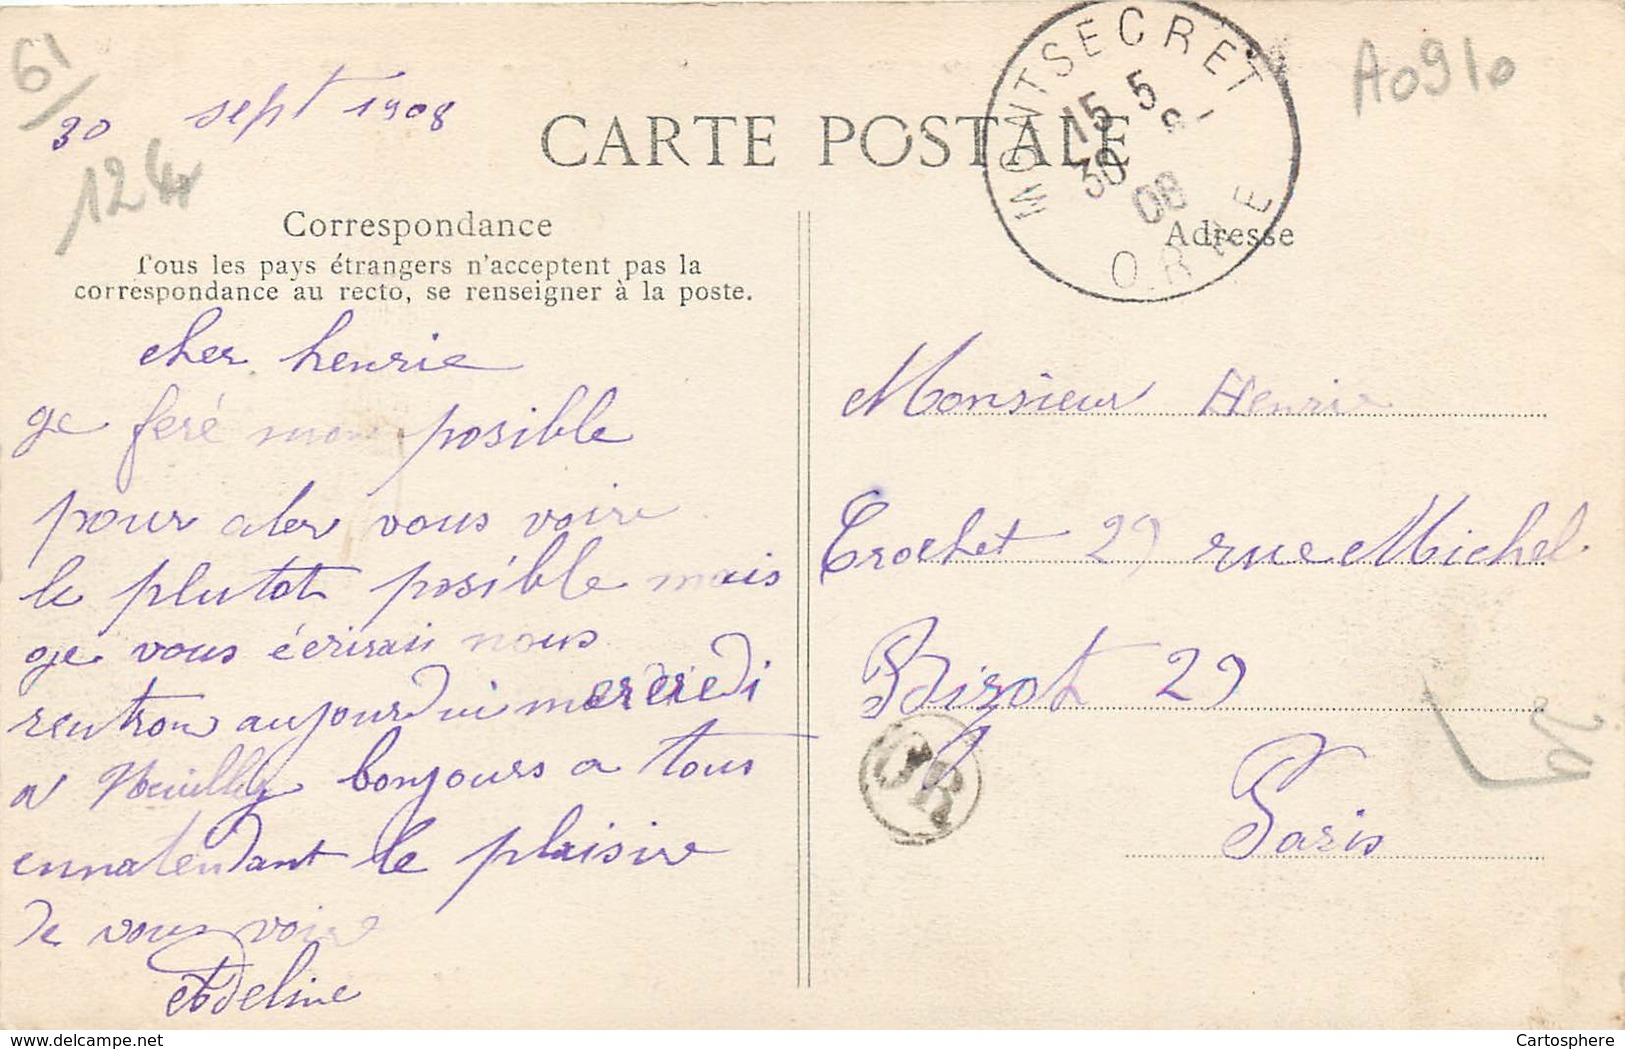 61
30 sept 1908
124
A0910
CARTE POSTALE
MONTSECRET
15 5
30 9
08
ORNE
Correspondance
Tous les pays étrangers n'acceptent pas la
correspondance au recto, se renseigner à la poste.
Adresse
cher henrie
ge feré mon posible
pour aler vous voire
le plutot posible mais
ge vous écrirai nous
rentron aujourdui mercredi
a Neuilly bonjours a tous
ennatendant le plaisire
de vous voire
Adeline
Monsieur Henrie
Crochet 29 rue Michel
Bizot 29
Paris
OR
Cartosphere
www.delcampe.net